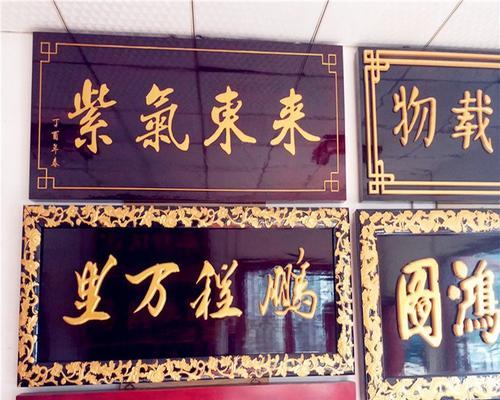 紫氣東来
丁酉年春
载物
鹏程万里
鸿圖